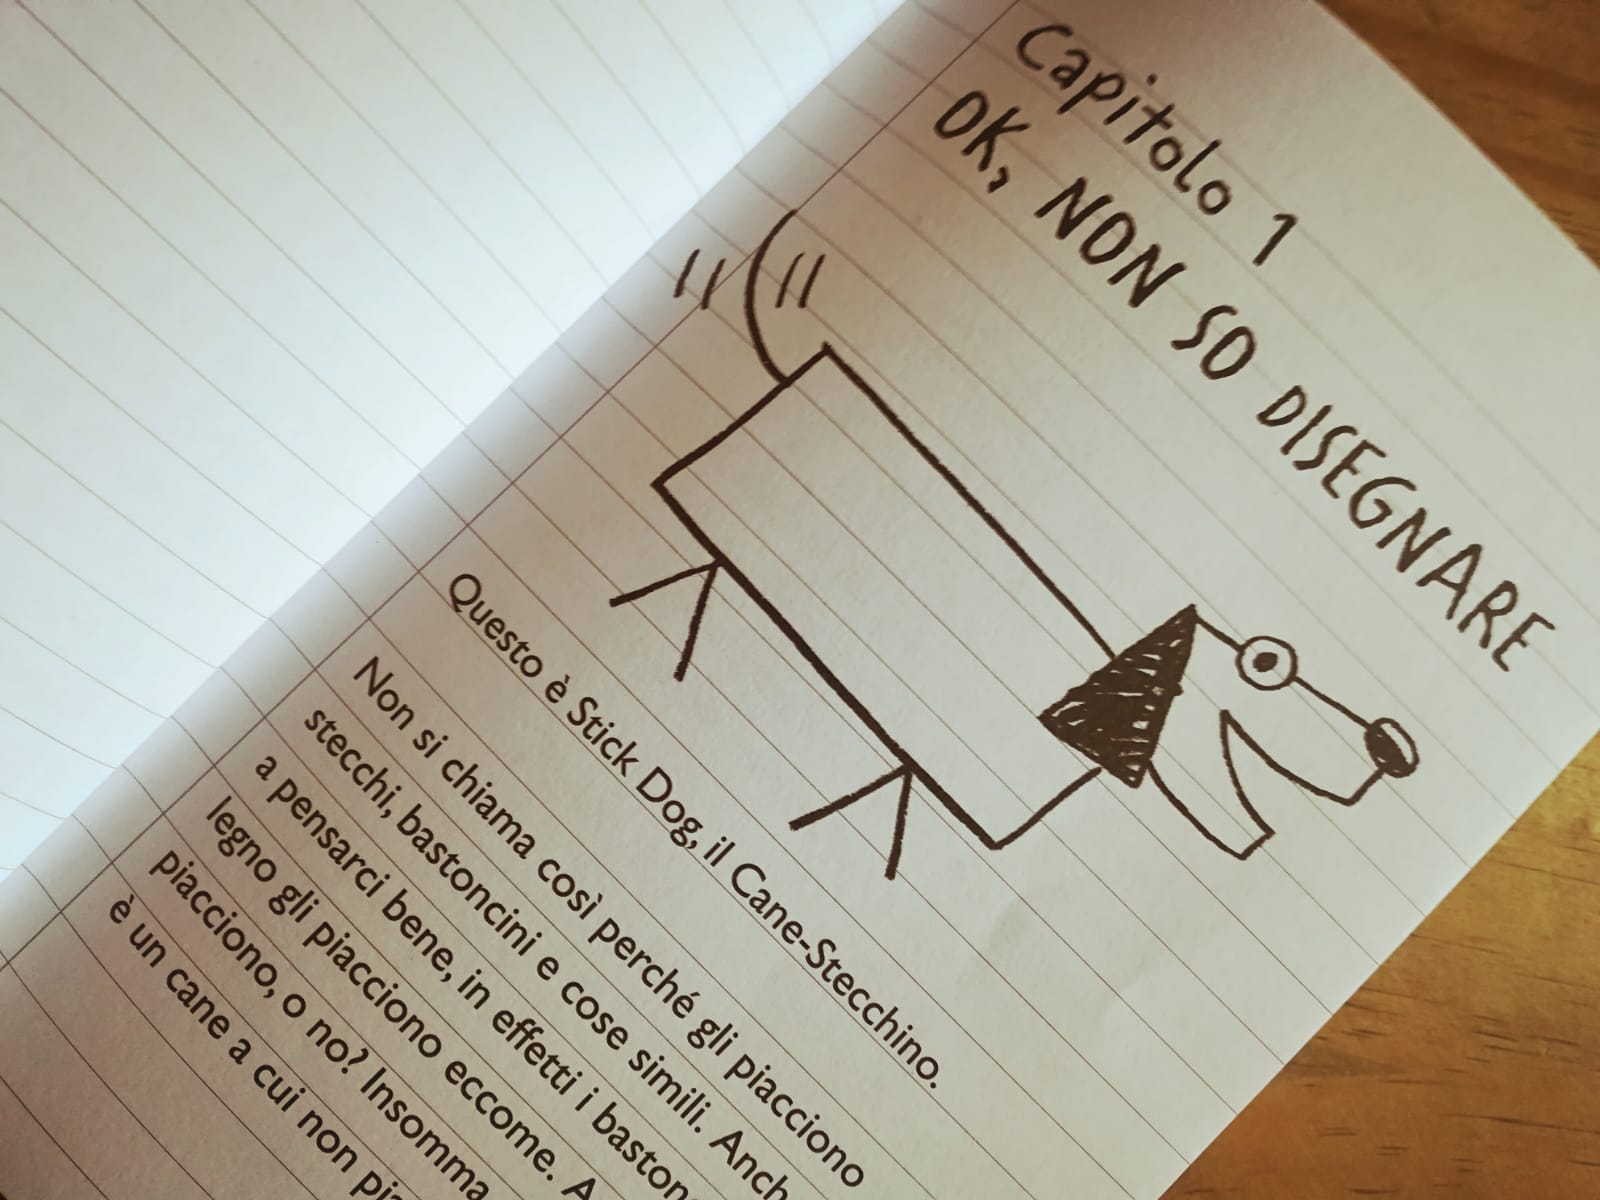 Capitolo 1
OK, NON SO DISEGNARE
Questo è Stick Dog, il Cane-Stecchino.
Non si chiama così perché gli piacciono
stecchi, bastoncini e cose simili. Anch
a pensarci bene, in effetti i baston
legno gli piacciono eccome. A
piacciono, o no? Insomma
è un cane a cui non pia